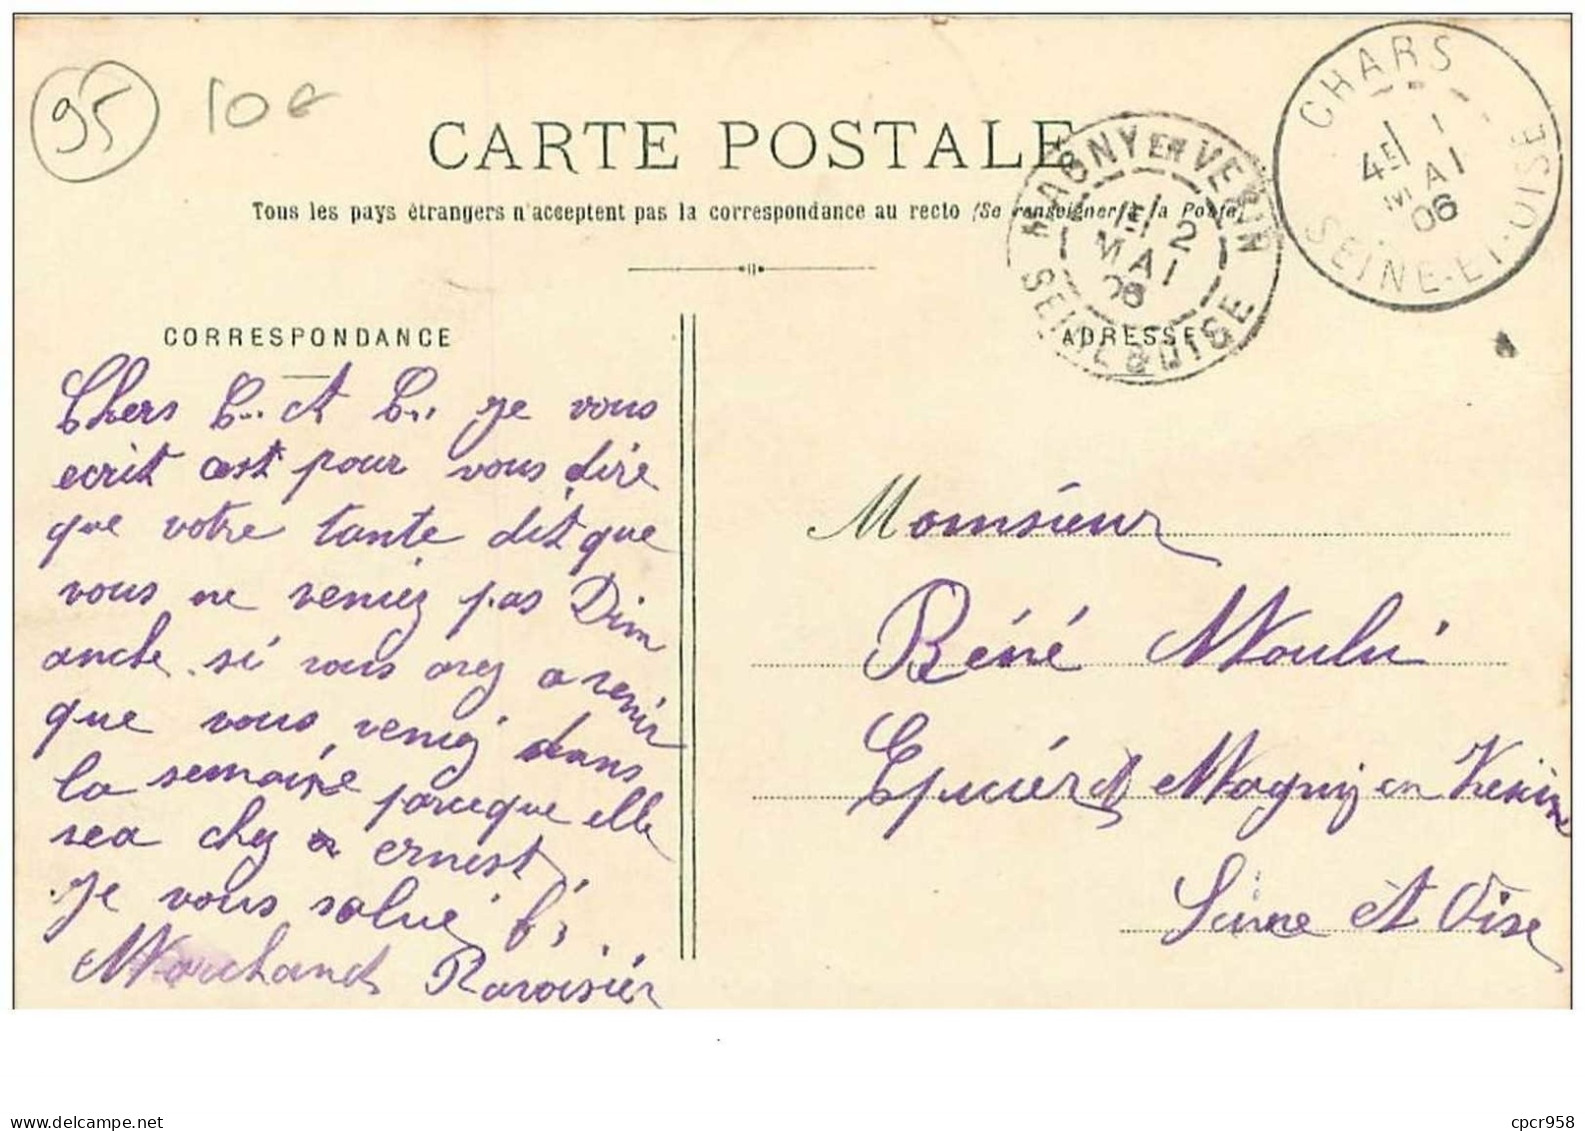 95 10€
CARTE POSTALE
Tous les pays étrangers n'acceptent pas la correspondance au recto (Se renseigner à la Poste)
CHARS
4E 1
MAI
06
SEINE-ET-OISE
MAGNY EN VEXIN
E 2
MAI
06
SEINE & OISE
CORRESPONDANCE
ADRESSE
Chers C.. et C.. je vous
ecrit cest pour vous dire
que votre tante dit que
vous ne veniez pas Dim
anche. si vous avez a venir
que vous veniez dans
la semaine parceque elle
sea chez a ernest,
je vous salue
Marchand Ravoisier
Monsieur
Réné Moulu
Epicier A Magny en Vexin
Seine et Oise
www.delcampe.net
cpcr958